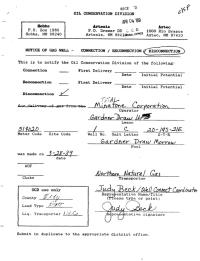 OIL CONSERVATION DIVISION
APR 04 1989
Hobbs
P.O. Box 1980
Hobbs, NM 88240
Artesia
P.O. Drawer DD
Artesia, NM 88210
Aztec
1000 Rio Brazos
Aztec, NM 87410
NOTICE OF GAS WELL - CONNECTION / RECONNECTION / DISCONNECTION
This is to notify the Oil Conservation Division of the following:
Connection First Delivery
Date Initial Potential
Reconnection First Delivery
Date Initial Potential
Disconnection ✓
Minatone Corporation
Operator
Gardner Draw
Lease
Meter Code Site Code Well No. Unit Letter S-T-R
Gardner Draw Morrow
Pool
was made on 3-28-89
date
AOF
Choke
Northern Natural Gas
Transporter
OCD use only
County
Land Type
Liq. Transporter
Judy Beck / Gas Contract Coordinator
Representative Name/Title
(Please type or print)
Judy Beck
Representative signature
Submit in duplicate to the appropriate district office.